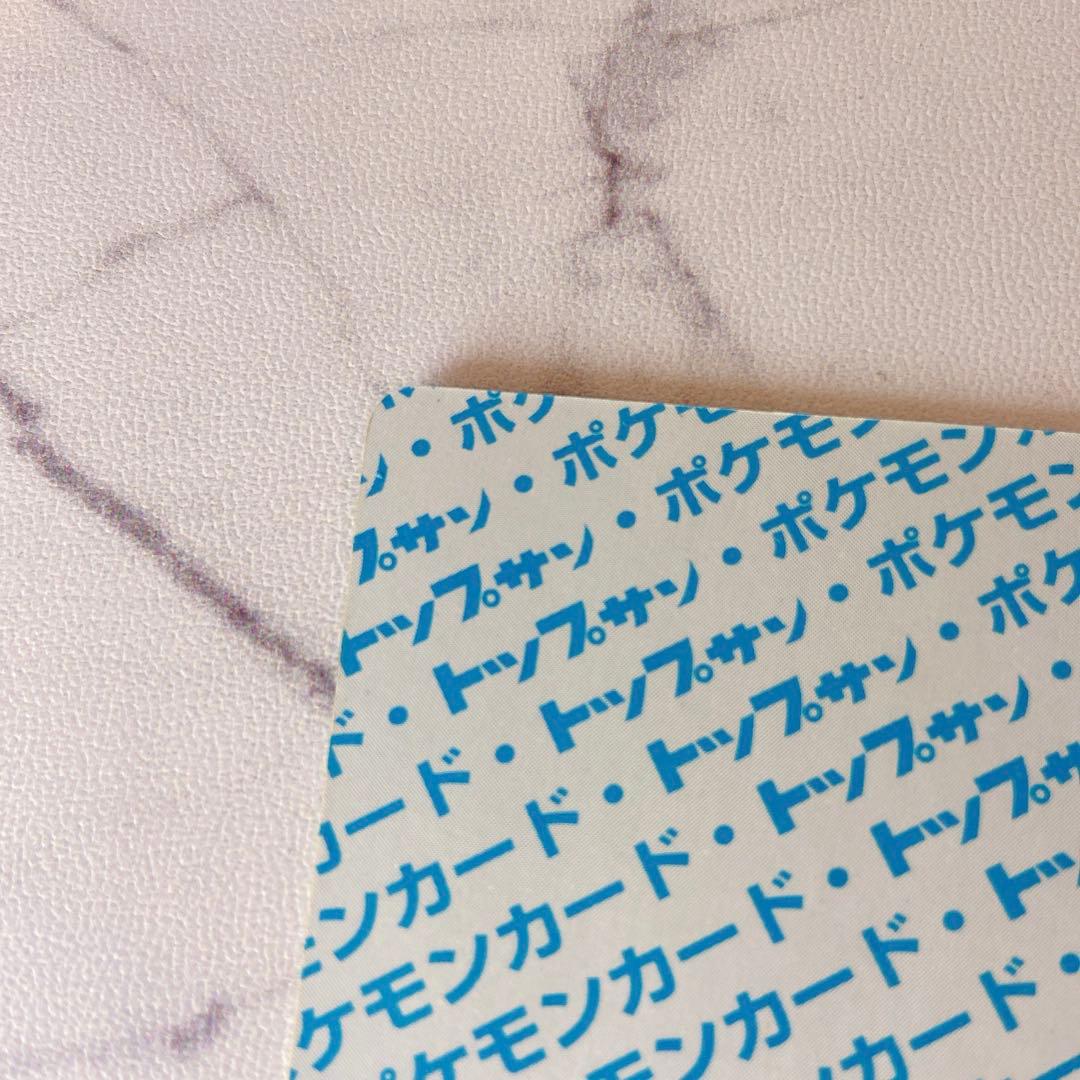 ン・ポケ
プサン・ポケモ
トップサン・ポケモン
ド・トップサン・ポケモン
カード・トップサン・ポケモン
モンカード・トップサン・ポケ
ケモンカード・トップサン・
ポケモンカード・トップサ
モンカード・トッ
カード・